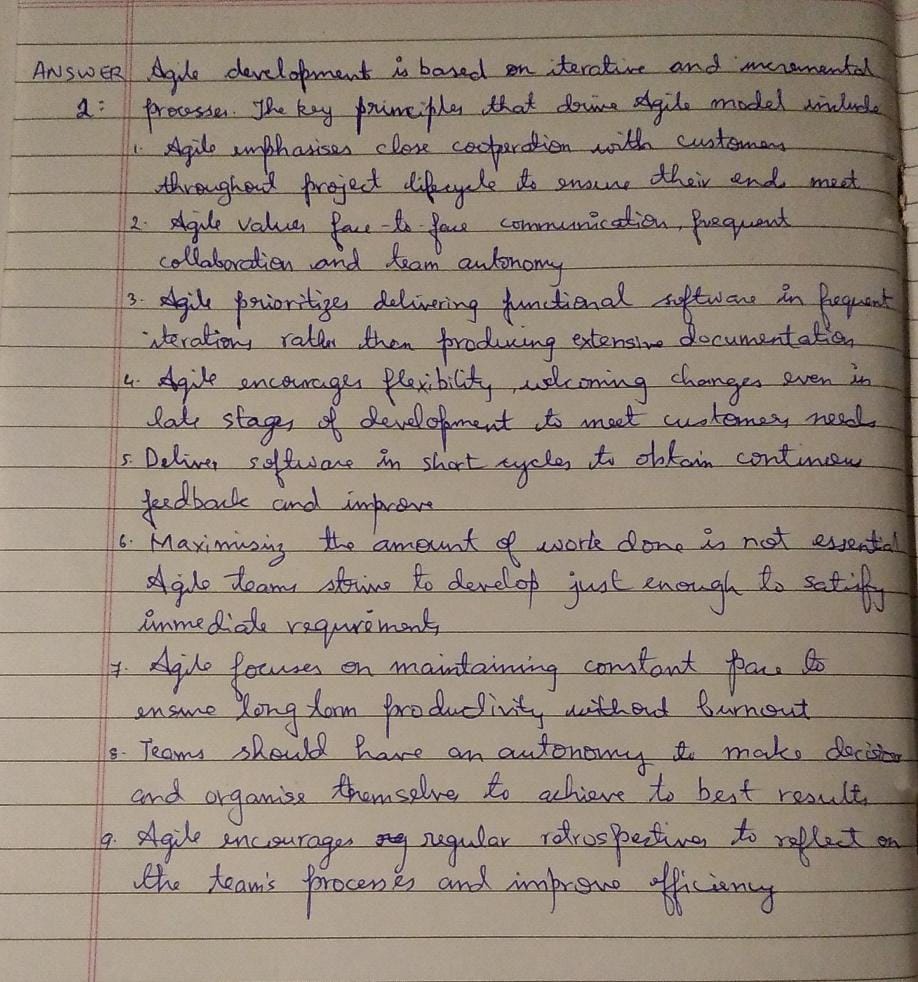 ANSWER Agile development is based on iterative and incremental
2: processes. The key principles that drive Agile model include
1. Agile emphasises close cooperation with customers
throughout project lifecycle to ensure their ends meet
2. Agile values face-to-face communication, frequent
collaboration and team autonomy
3. Agile prioritizes delivering functional software in frequent
iterations rather then producing extensive documentation
4. Agile encourages flexibility, welcoming changes even in
late stages of development to meet customers needs
5. Deliver software in short cycles to obtain continuous
feedback and improve
6. Maximising the amount of work done is not essential
Agile teams strive to develop just enough to satisfy
immediate requirements
7. Agile focuses on maintaining constant pace to
ensure long term productivity without burnout
8. Teams should have an autonomy to make decision
and organise themselves to achieve to best results
9. Agile encourages reg regular retrospectives to reflect on
the team's processes and improve efficiency